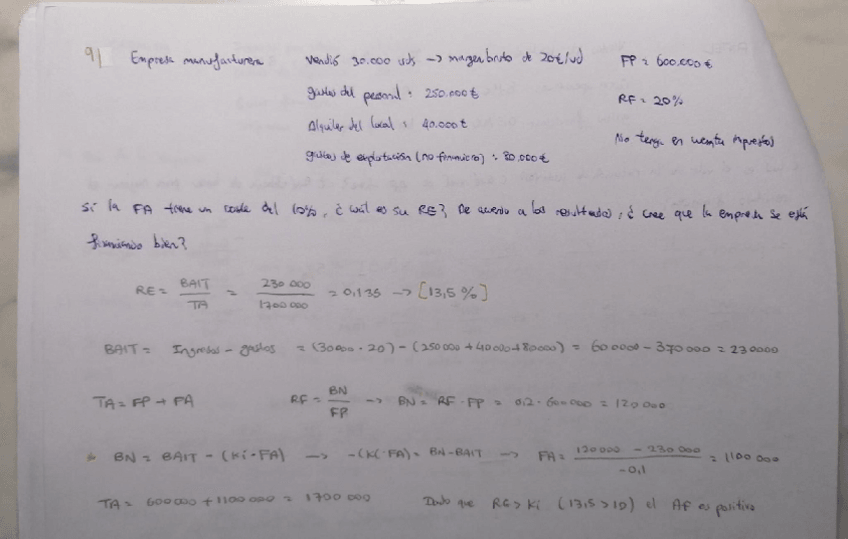 9| Empresa manufacturera Vendió 30.000 uds → margen bruto de 20€/ud FP = 600.000€
gastos del personal: 250.000€ RF = 20%
Alquiler del local: 40.000€ No tenga en cuenta impuestos
gastos de explotación (no financiero): 80.000€
Si la FA tiene un coste del 10%, ¿cuál es su RE? De acuerdo a los resultados, ¿cree que la empresa se está
financiando bien?
RE = BAIT / TA = 230 000 / 1700 000 = 0,135 → [13,5%]
BAIT = Ingresos - gastos = (30000 · 20) - (250000 + 40000 + 80000) = 600000 - 370000 = 230000
TA = FP + FA RF = BN / FP → BN = RF · FP = 0,2 · 600000 = 120 000
BN = BAIT - (Ki · FA) → -(Ki · FA) = BN - BAIT → FA = 120000 - 230 000 / -0,1 = 1100 000
TA = 600000 + 1100 000 = 1700 000 Dado que RE > Ki (13,5 > 10) el AF es positivo